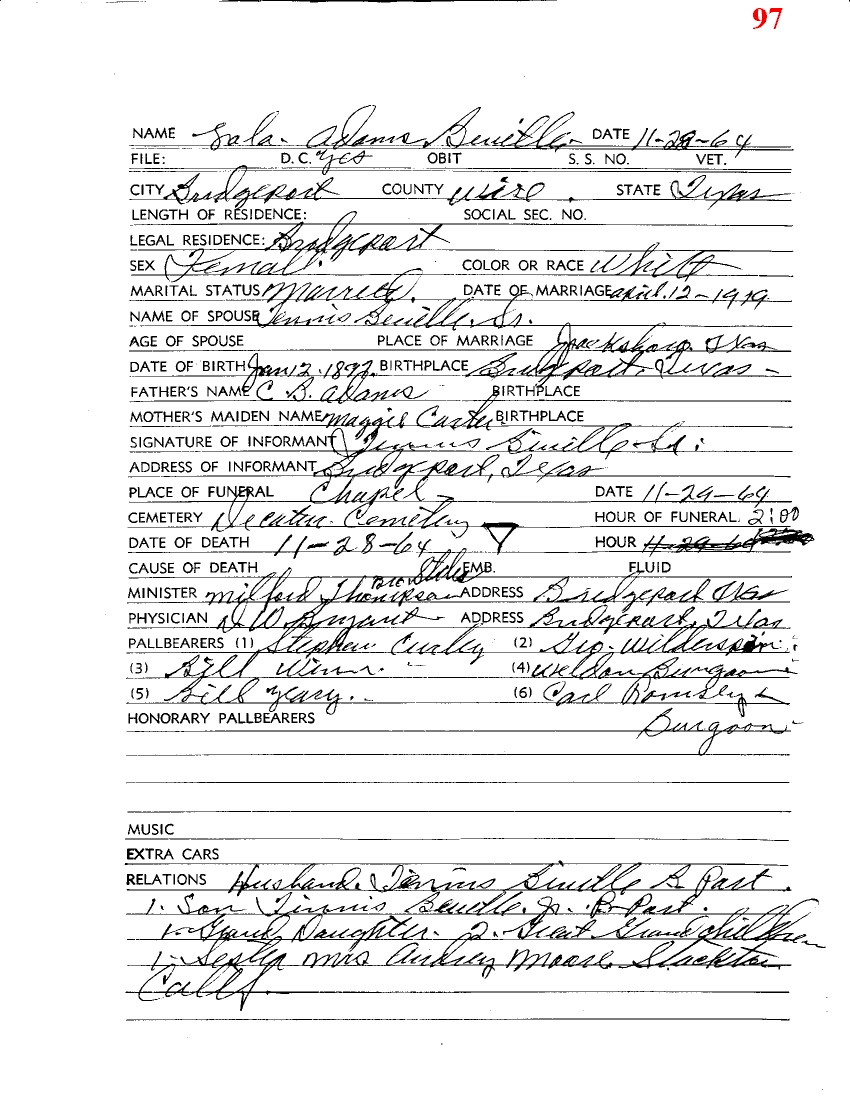 97
NAME Lala Adams Beville DATE 11-28-64
FILE: D.C. Yes OBIT S. S. NO. VET.
CITY Bridgeport COUNTY Wise STATE Texas
LENGTH OF RESIDENCE: SOCIAL SEC. NO.
LEGAL RESIDENCE: Bridgeport
SEX Femal COLOR OR RACE White
MARITAL STATUS Married. DATE OF MARRIAGE april.12-1919
NAME OF SPOUSE Tennis Beville. Sr.
AGE OF SPOUSE PLACE OF MARRIAGE Jacksboro. Texas
DATE OF BIRTH Jan 12.1897. BIRTHPLACE Bridgeport, Texas -
FATHER'S NAME C. B. Adams BIRTHPLACE
MOTHER'S MAIDEN NAME Maggie Carter BIRTHPLACE
SIGNATURE OF INFORMANT Tennis Beville Sr.
ADDRESS OF INFORMANT Bridgeport, Texas
PLACE OF FUNERAL Chapel - DATE 11-29-64
CEMETERY Decatur Cemetery HOUR OF FUNERAL. 2:00
DATE OF DEATH 11-28-64 HOUR 11-29-64
CAUSE OF DEATH EMB. FLUID
MINISTER Milford Thompson Bro ADDRESS Bridgeport
PHYSICIAN Bryant ADDRESS Bridgeport, Texas
PALLBEARERS (1) Stephen Curley (2) Geo. Wilderspin.
(3) Bill Winn. (4) Weldon Burgoon
(5) Bill Yeary. (6) Carl
HONORARY PALLBEARERS Burgoon
MUSIC
EXTRA CARS
RELATIONS Husband. Tennis Beville B. Port.
1. Son Tinnis Beville. Jr. B-Port.
1- Grand Daughter. 2. Great Grand Children
1- Sister Mrs Audrey Moore Stockton
Calif.